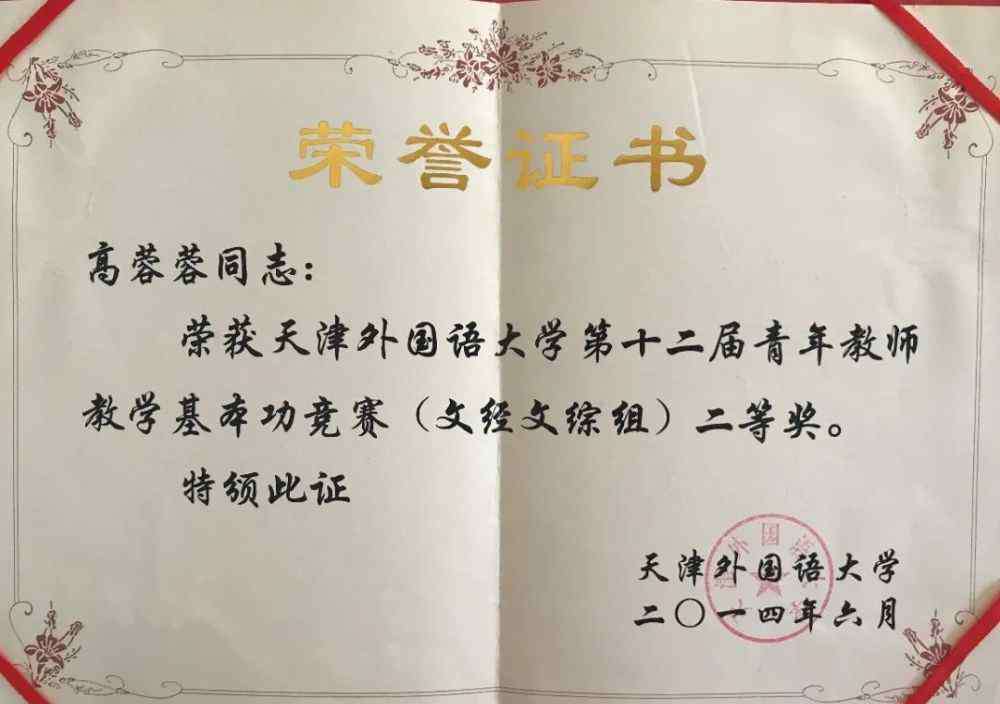 荣誉证书
高蓉蓉同志：
荣获天津外国语大学第十二届青年教师
教学基本功竞赛（文经文综组）二等奖。
特颁此证
天津外国语大学
二〇一四年六月